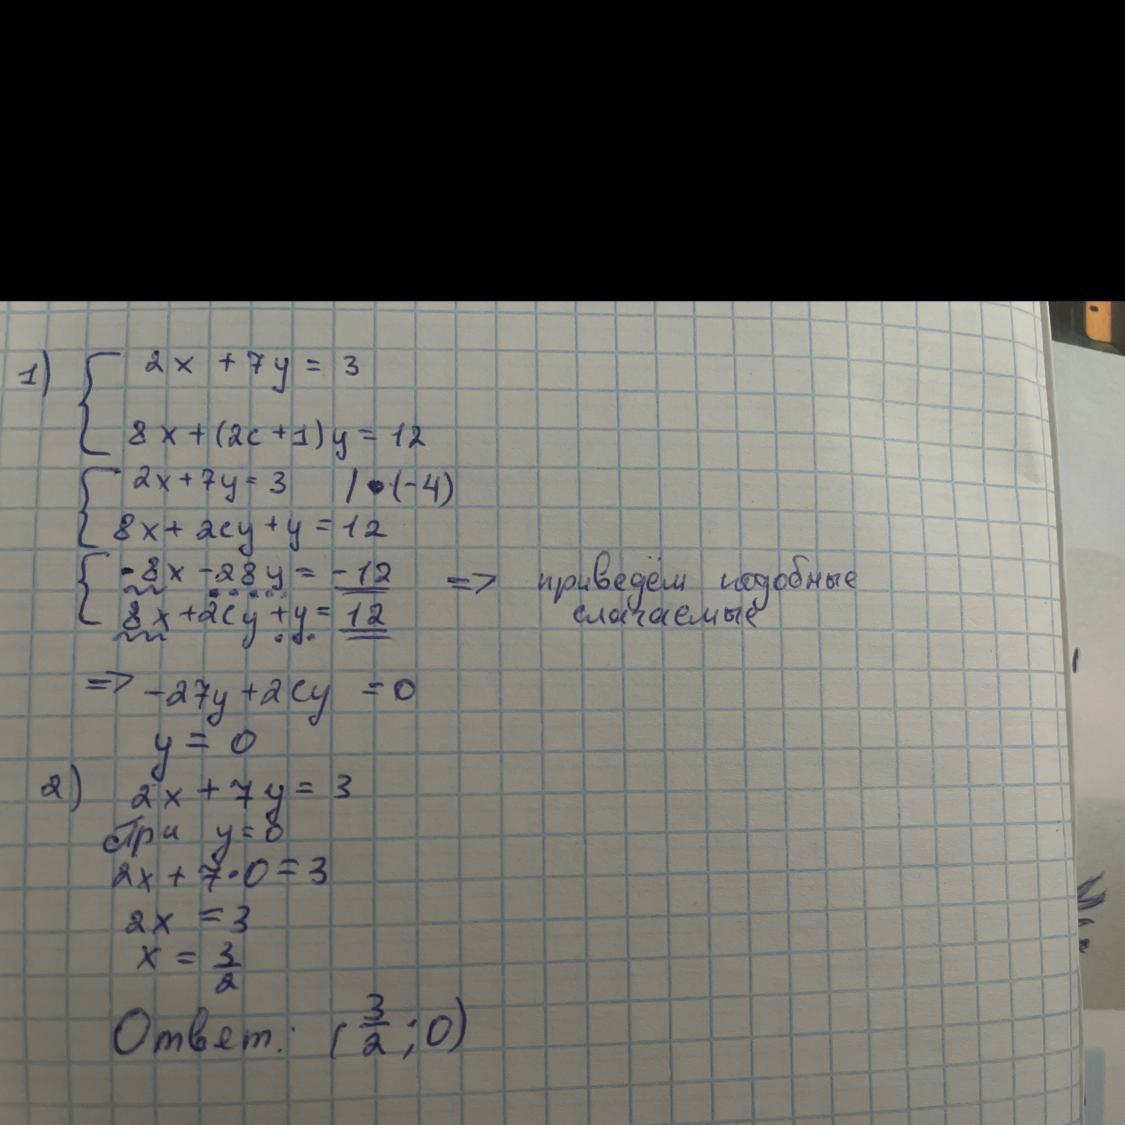 1) 2x + 7y = 3
8x + (2c + 1) y = 12
2x + 7y = 3 / • (-4)
8x + 2cy + y = 12
-8x - 28y = -12 => приведём подобные
8x + 2cy + y = 12 слагаемые
=> -27y + 2cy = 0
y = 0
2) 2x + 7y = 3
При y = 0
2x + 7 • 0 = 3
2x = 3
x = 3/2
Ответ: (3/2 ; 0)